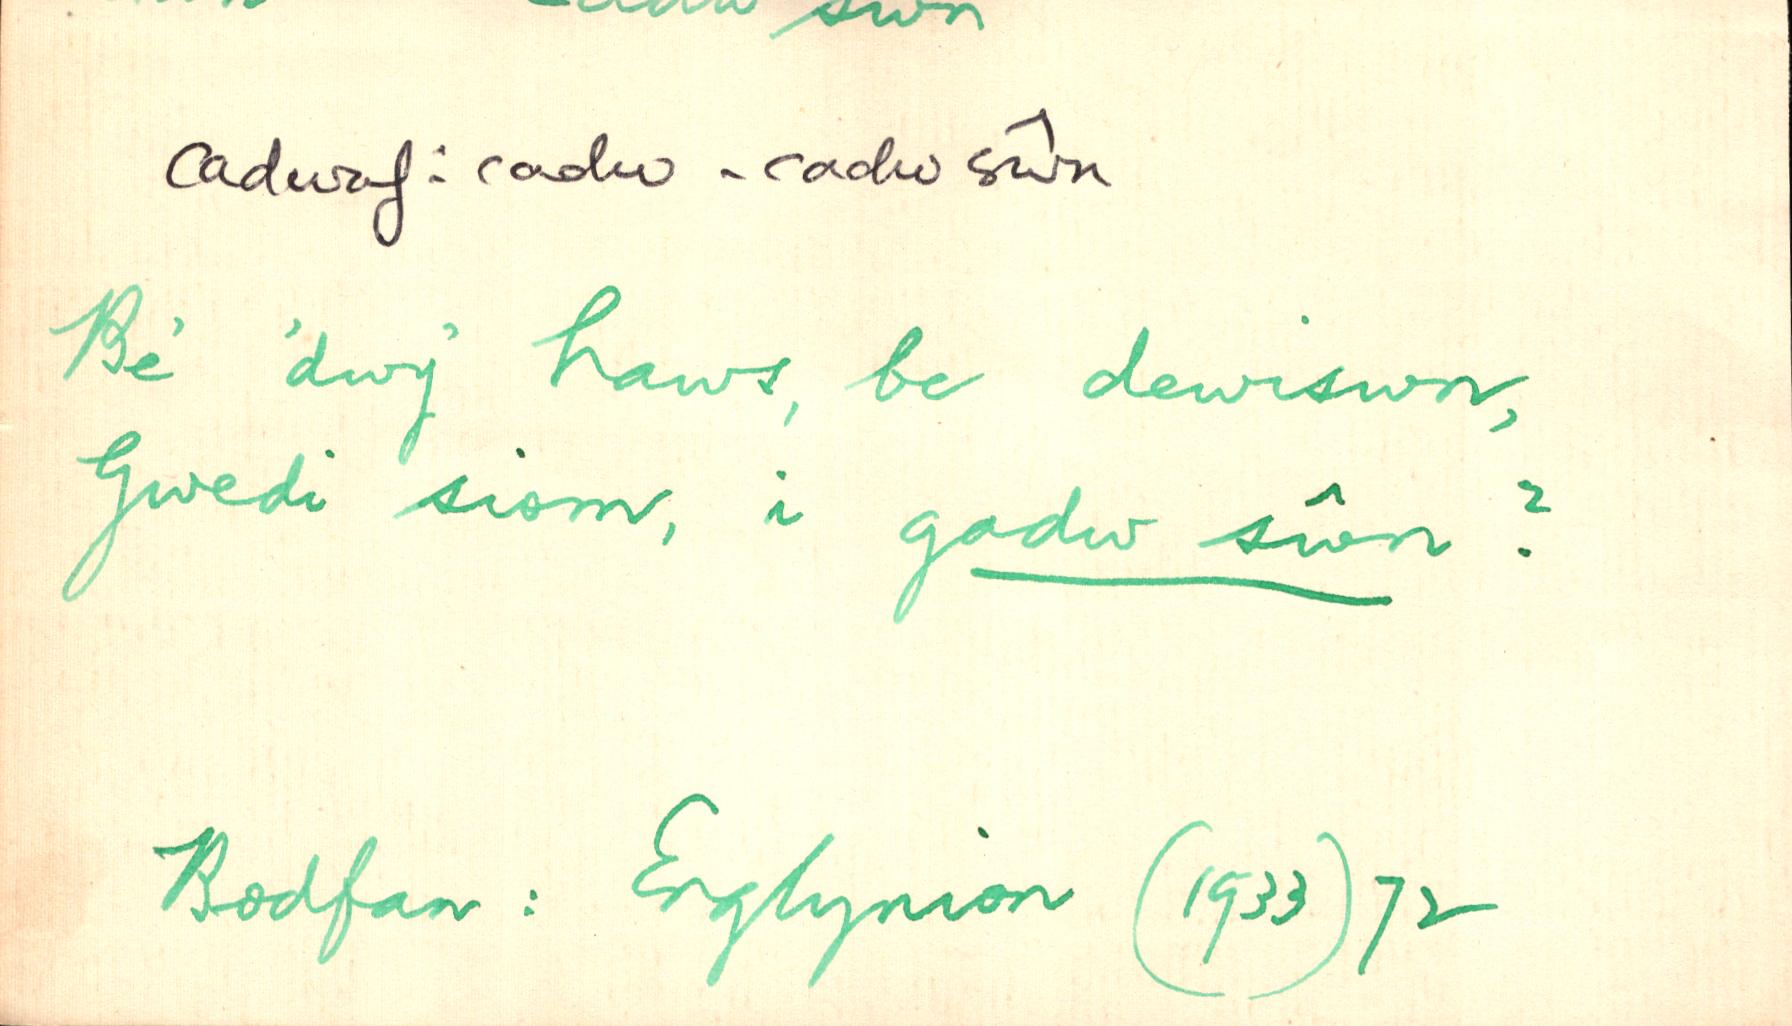 cadw swn
Cadwaf: cadw - cadw sŵn
Be' 'dwy' haws, be dewiswn,
Gwedi siom, i gadw sŵn?
Bodfan: Englynion (1933) 72